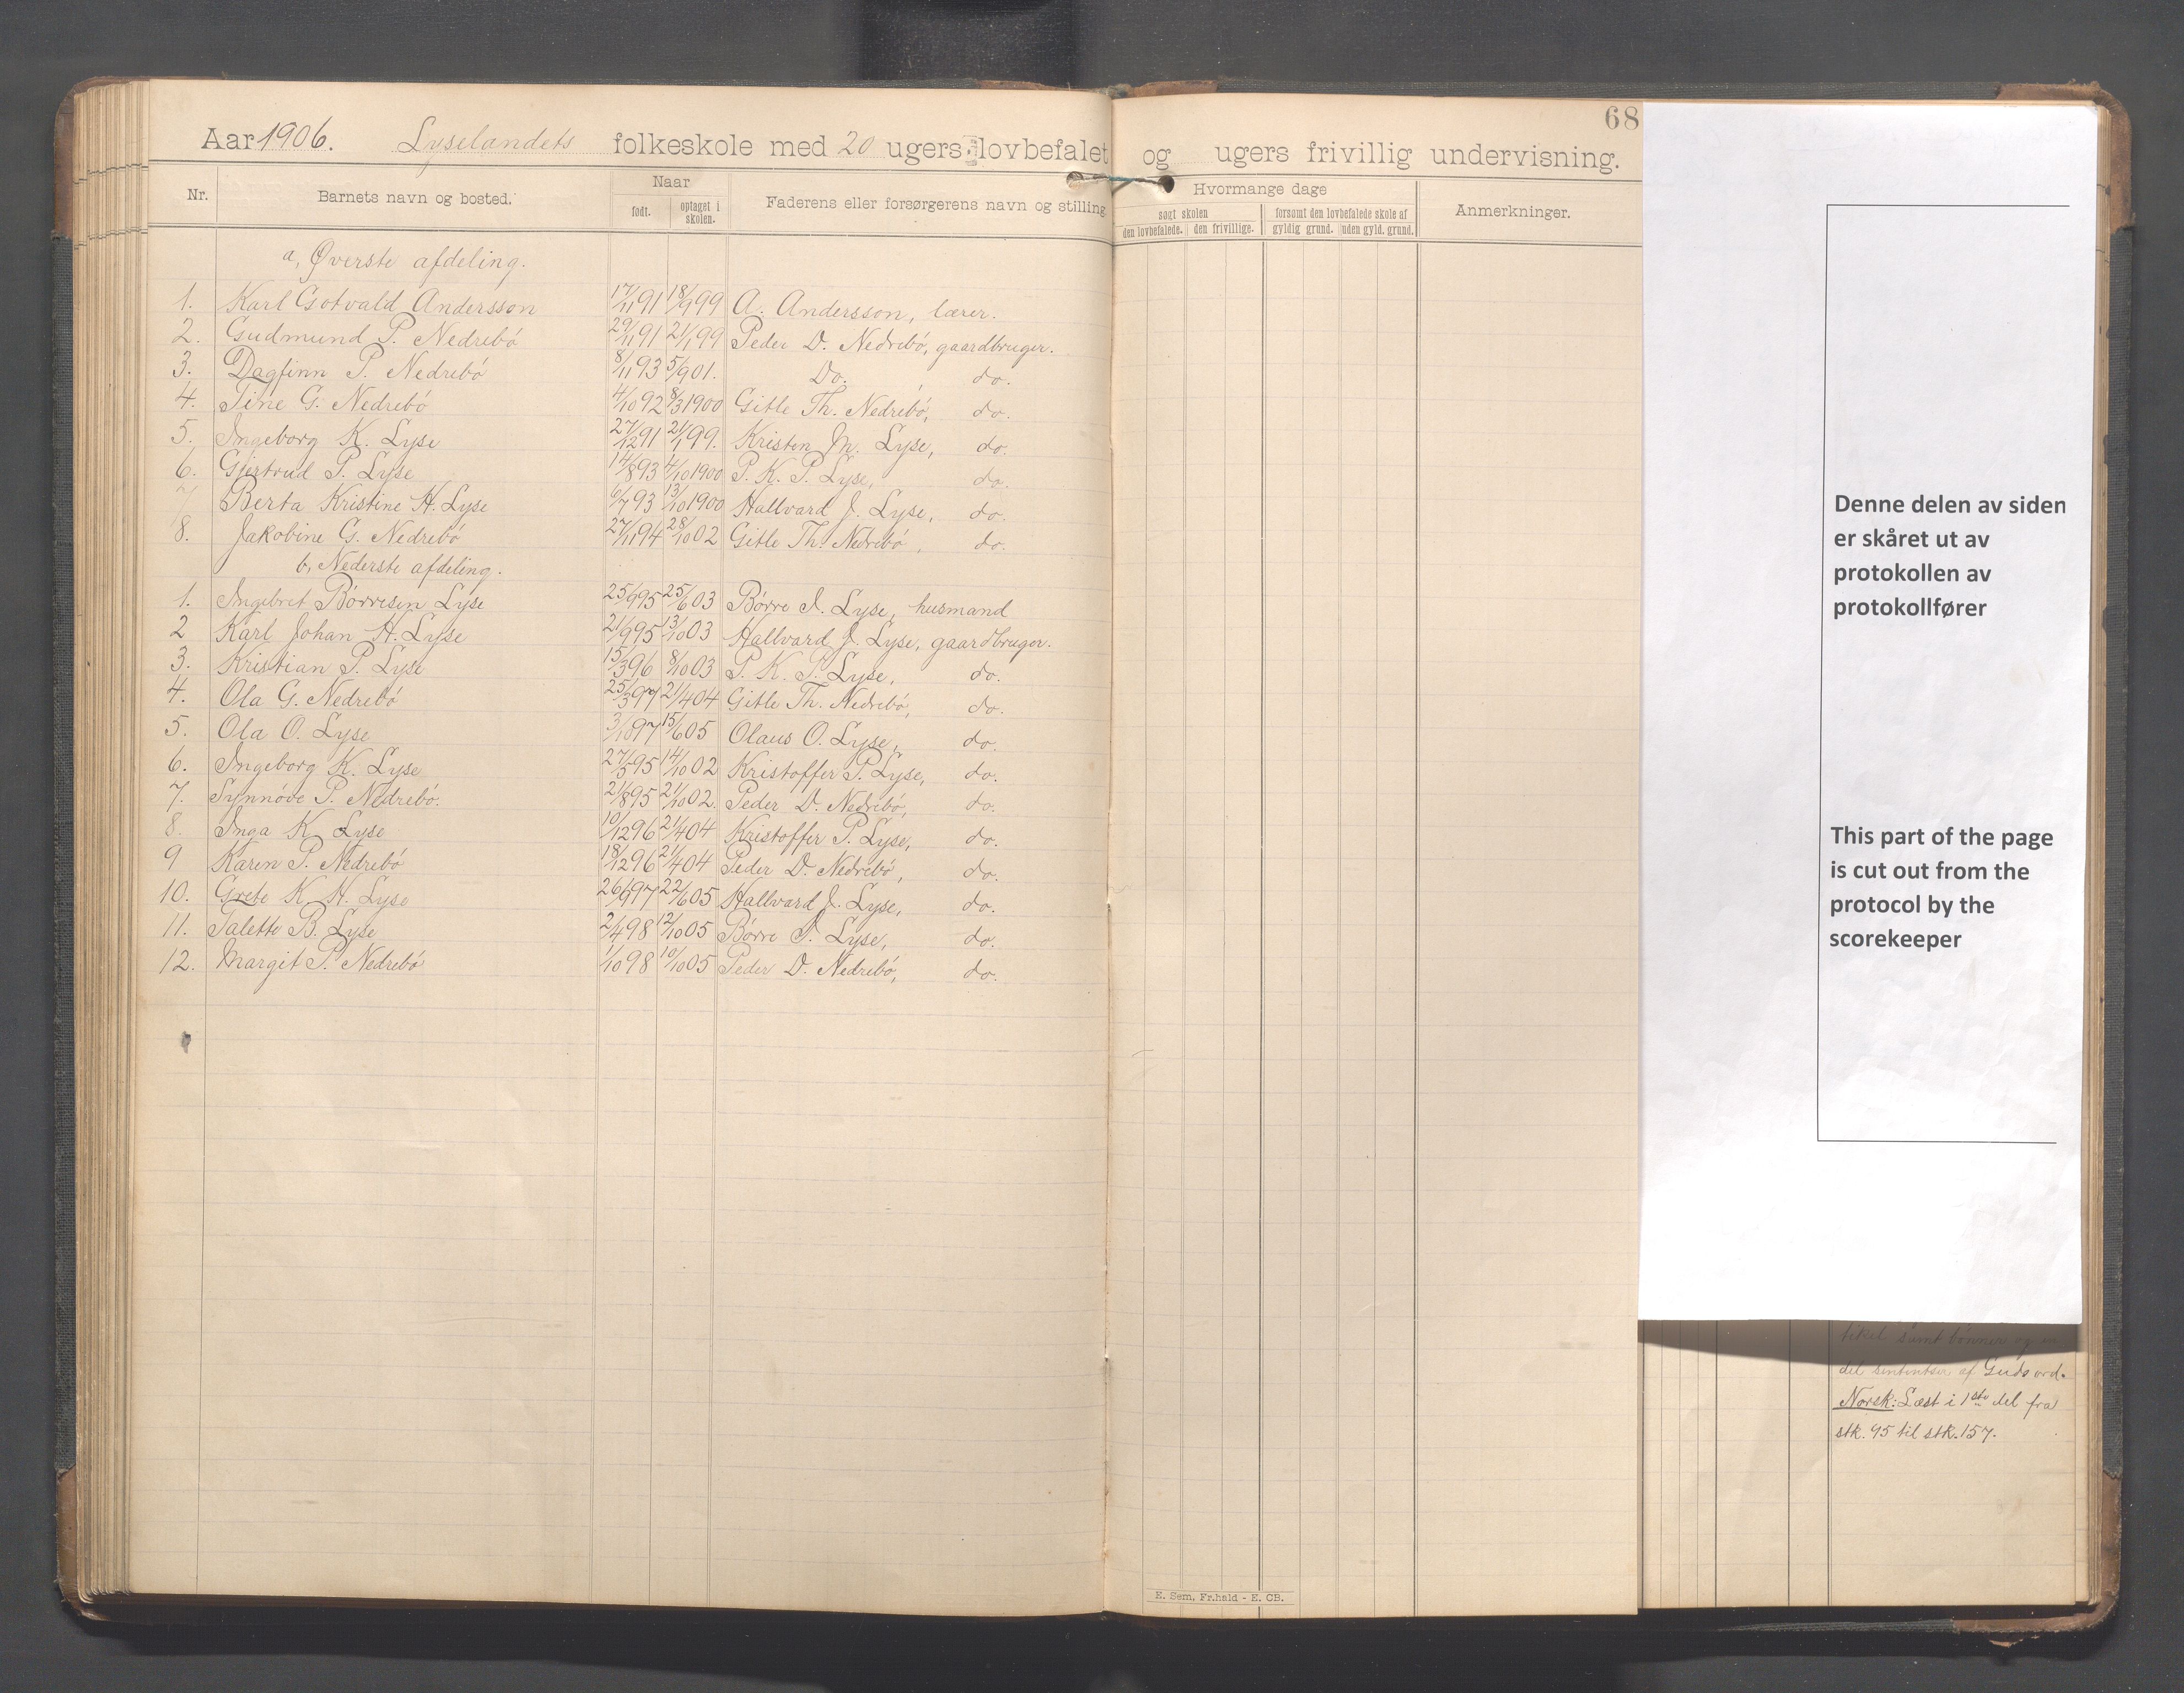 68
Aar 1906. Lyselandets folkeskole med 20 ugers lovbefalet og ugers frivillig undervisning.
Nr. Barnets navn og bosted. Naar Faderens eller forsørgerens navn og stilling Hvormange dage Anmerkninger.
født. optaget i skolen. søgt skolen forsømt den lovbefalede skole af
den lovbefalede. den frivillige. gyldig grund. uden gyld. grund.
a, Øverste afdeling.
1. Karl Gotvald Andersson 17/11 91 18/9 99 A. Andersson, lærer.
2. Gudmund P. Nedrebö 29/11 91 21/1 99 Peder D. Nedrebö, gaardbruger.
3. Dagfinn P. Nedrebö 8/11 93 5/9 01. Do. do.
4. Tine G. Nedrebö 4/10 92 8/3 1900 Gitle Th. Nedrebö, do.
5. Ingeborg K. Lyse 27/12 91 21/1 99. Kristen M. Lyse, do.
6. Gjertrud P. Lyse 14/8 93 4/10 1900 P. K. P. Lyse, do.
7 Berta Kristine H. Lyse 6/7 93 13/10 1900 Hallvard J. Lyse, do.
8. Jakobine G. Nedrebö 27/11 94 28/10 02 Gitle Th. Nedrebö, do.
b, Nederste afdeling.
1. Ingebret Børresen Lyse 25/9 95 25/6 03 Børre I. Lyse, husmand
2 Karl Johan H. Lyse 21/9 95 13/10 03 Hallvard J. Lyse, gaardbruger.
3. Kristian P. Lyse 15/3 96 8/10 03 P. K. P. Lyse, do.
4. Ola G. Nedrebö 25/3 97 21/4 04 Gitle Th. Nedrebö, do.
5. Ola O. Lyse 3/10 97 15/6 05 Olaus O. Lyse, do.
6. Ingeborg K. Lyse 27/5 95 14/10 02 Kristoffer P. Lyse, do.
7. Synnöve P. Nedrebö. 21/8 95 21/10 02. Peder D. Nedrebö, do.
8. Inga K. Lyse 10/12 96 21/4 04 Kristoffer P. Lyse, do.
9 Karen P. Nedrebö 18/12 96 21/4 04 Peder D. Nedrebö, do.
10. Grete K. H. Lyse 26/9 97 22/6 05 Hallvard J. Lyse, do.
11. Talette B. Lyse 2/4 98 12/10 05 Børre I. Lyse, do.
12. Margit P. Nedrebö 1/10 98 10/10 05 Peder D. Nedrebö, do.
E. Sem, Fr.hald - E. CB.
Denne delen av siden
er skåret ut av
protokollen av
protokollfører
This part of the page
is cut out from the
protocol by the
scorekeeper
samt bönner og en
del sententser af Guds ord.
Norsk: Læst i 1ste del fra
stk. 95 til stk. 157.